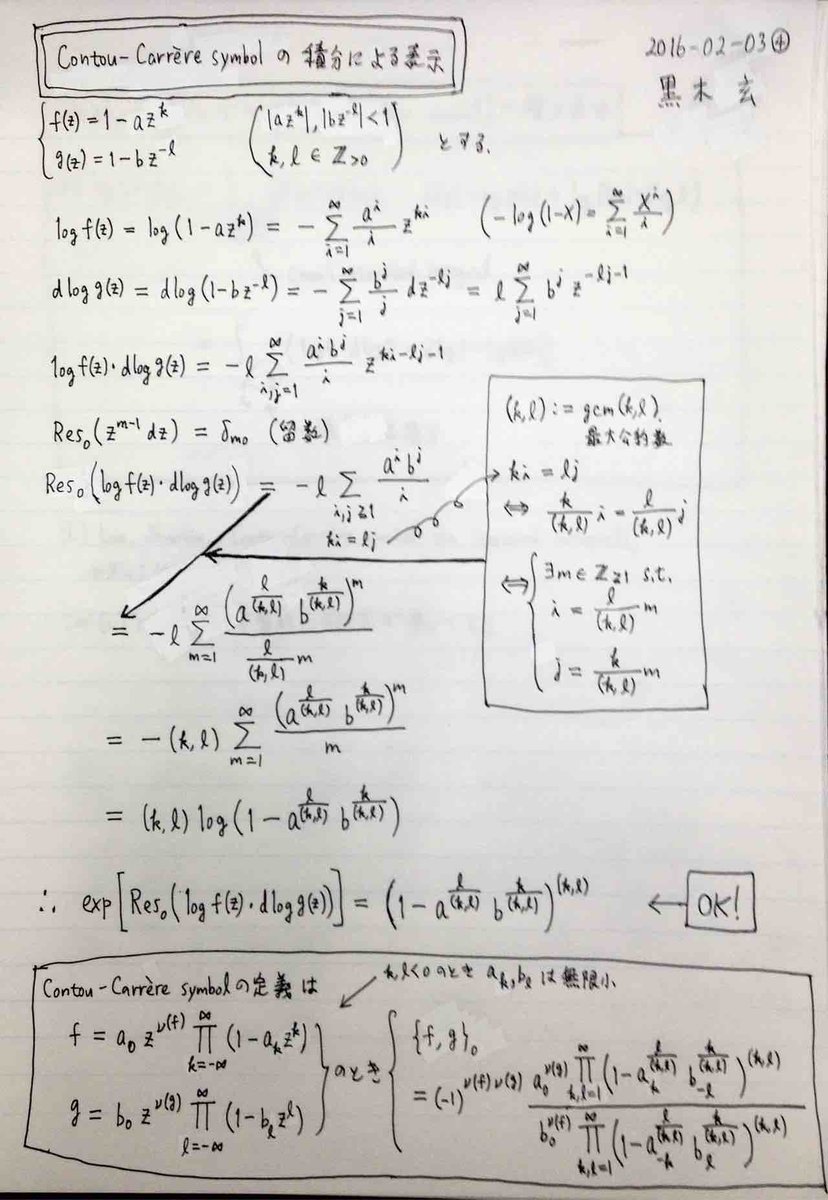 Contou-Carrère symbol の 積分による表示
2016-02-03④
黒木 玄
f(z) = 1 - az^k
g(z) = 1 - bz^{-l}
(|az^k|, |bz^{-l}| < 1
k, l ∈ ℤ_{>0})
とする、
log f(z) = log(1 - az^k) = - Σ_{i=1}^∞ \frac{a^i}{i} z^{ki} (-log(1-X) = Σ_{i=1}^∞ \frac{X^i}{i})
d log g(z) = d log(1 - bz^{-l}) = - Σ_{j=1}^∞ \frac{b^j}{j} dz^{-lj} = l Σ_{j=1}^∞ b^j z^{-lj-1}
log f(z)・d log g(z) = -l Σ_{i,j=1}^∞ \frac{a^i b^j}{i} z^{ki-lj-1}
Res_0(z^{m-1} dz) = δ_{m0} (留数)
Res_0(log f(z)・d log g(z)) = -l Σ_{i,j≧1, ki=lj} \frac{a^i b^j}{i}
(k,l) := gcm(k,l).
最大公約数
ki = lj
⇔ \frac{k}{(k,l)} i = \frac{l}{(k,l)} j
⇔ { ∃m ∈ ℤ_{≧1} s.t.
i = \frac{l}{(k,l)} m
j = \frac{k}{(k,l)} m
= -l Σ_{m=1}^∞ \frac{(a^{\frac{l}{(k,l)}} b^{\frac{k}{(k,l)}})^m}{\frac{l}{(k,l)} m}
= -(k,l) Σ_{m=1}^∞ \frac{(a^{\frac{l}{(k,l)}} b^{\frac{k}{(k,l)}})^m}{m}
= (k,l) log(1 - a^{\frac{l}{(k,l)}} b^{\frac{k}{(k,l)}})
∴ exp[Res_0(log f(z)・d log g(z))] = (1 - a^{\frac{l}{(k,l)}} b^{\frac{k}{(k,l)}})^{(k,l)} ← OK!
Contou-Carrère symbolの定義は
k,l<0 のとき a_k, b_l は無限小
f = a_0 z^{ν(f)} Π_{k=-∞}^∞ (1 - a_k z^k)
g = b_0 z^{ν(g)} Π_{l=-∞}^∞ (1 - b_l z^l)
のとき
{f, g}_0
= (-1)^{ν(f)ν(g)} \frac{a_0^{ν(g)} Π_{k,l=1}^∞ (1 - a_k^{\frac{l}{(k,l)}} b_{-l}^{\frac{k}{(k,l)}})^{(k,l)}}{b_0^{ν(f)} Π_{k,l=1}^∞ (1 - a_{-k}^{\frac{l}{(k,l)}} b_l^{\frac{k}{(k,l)}})^{(k,l)}}